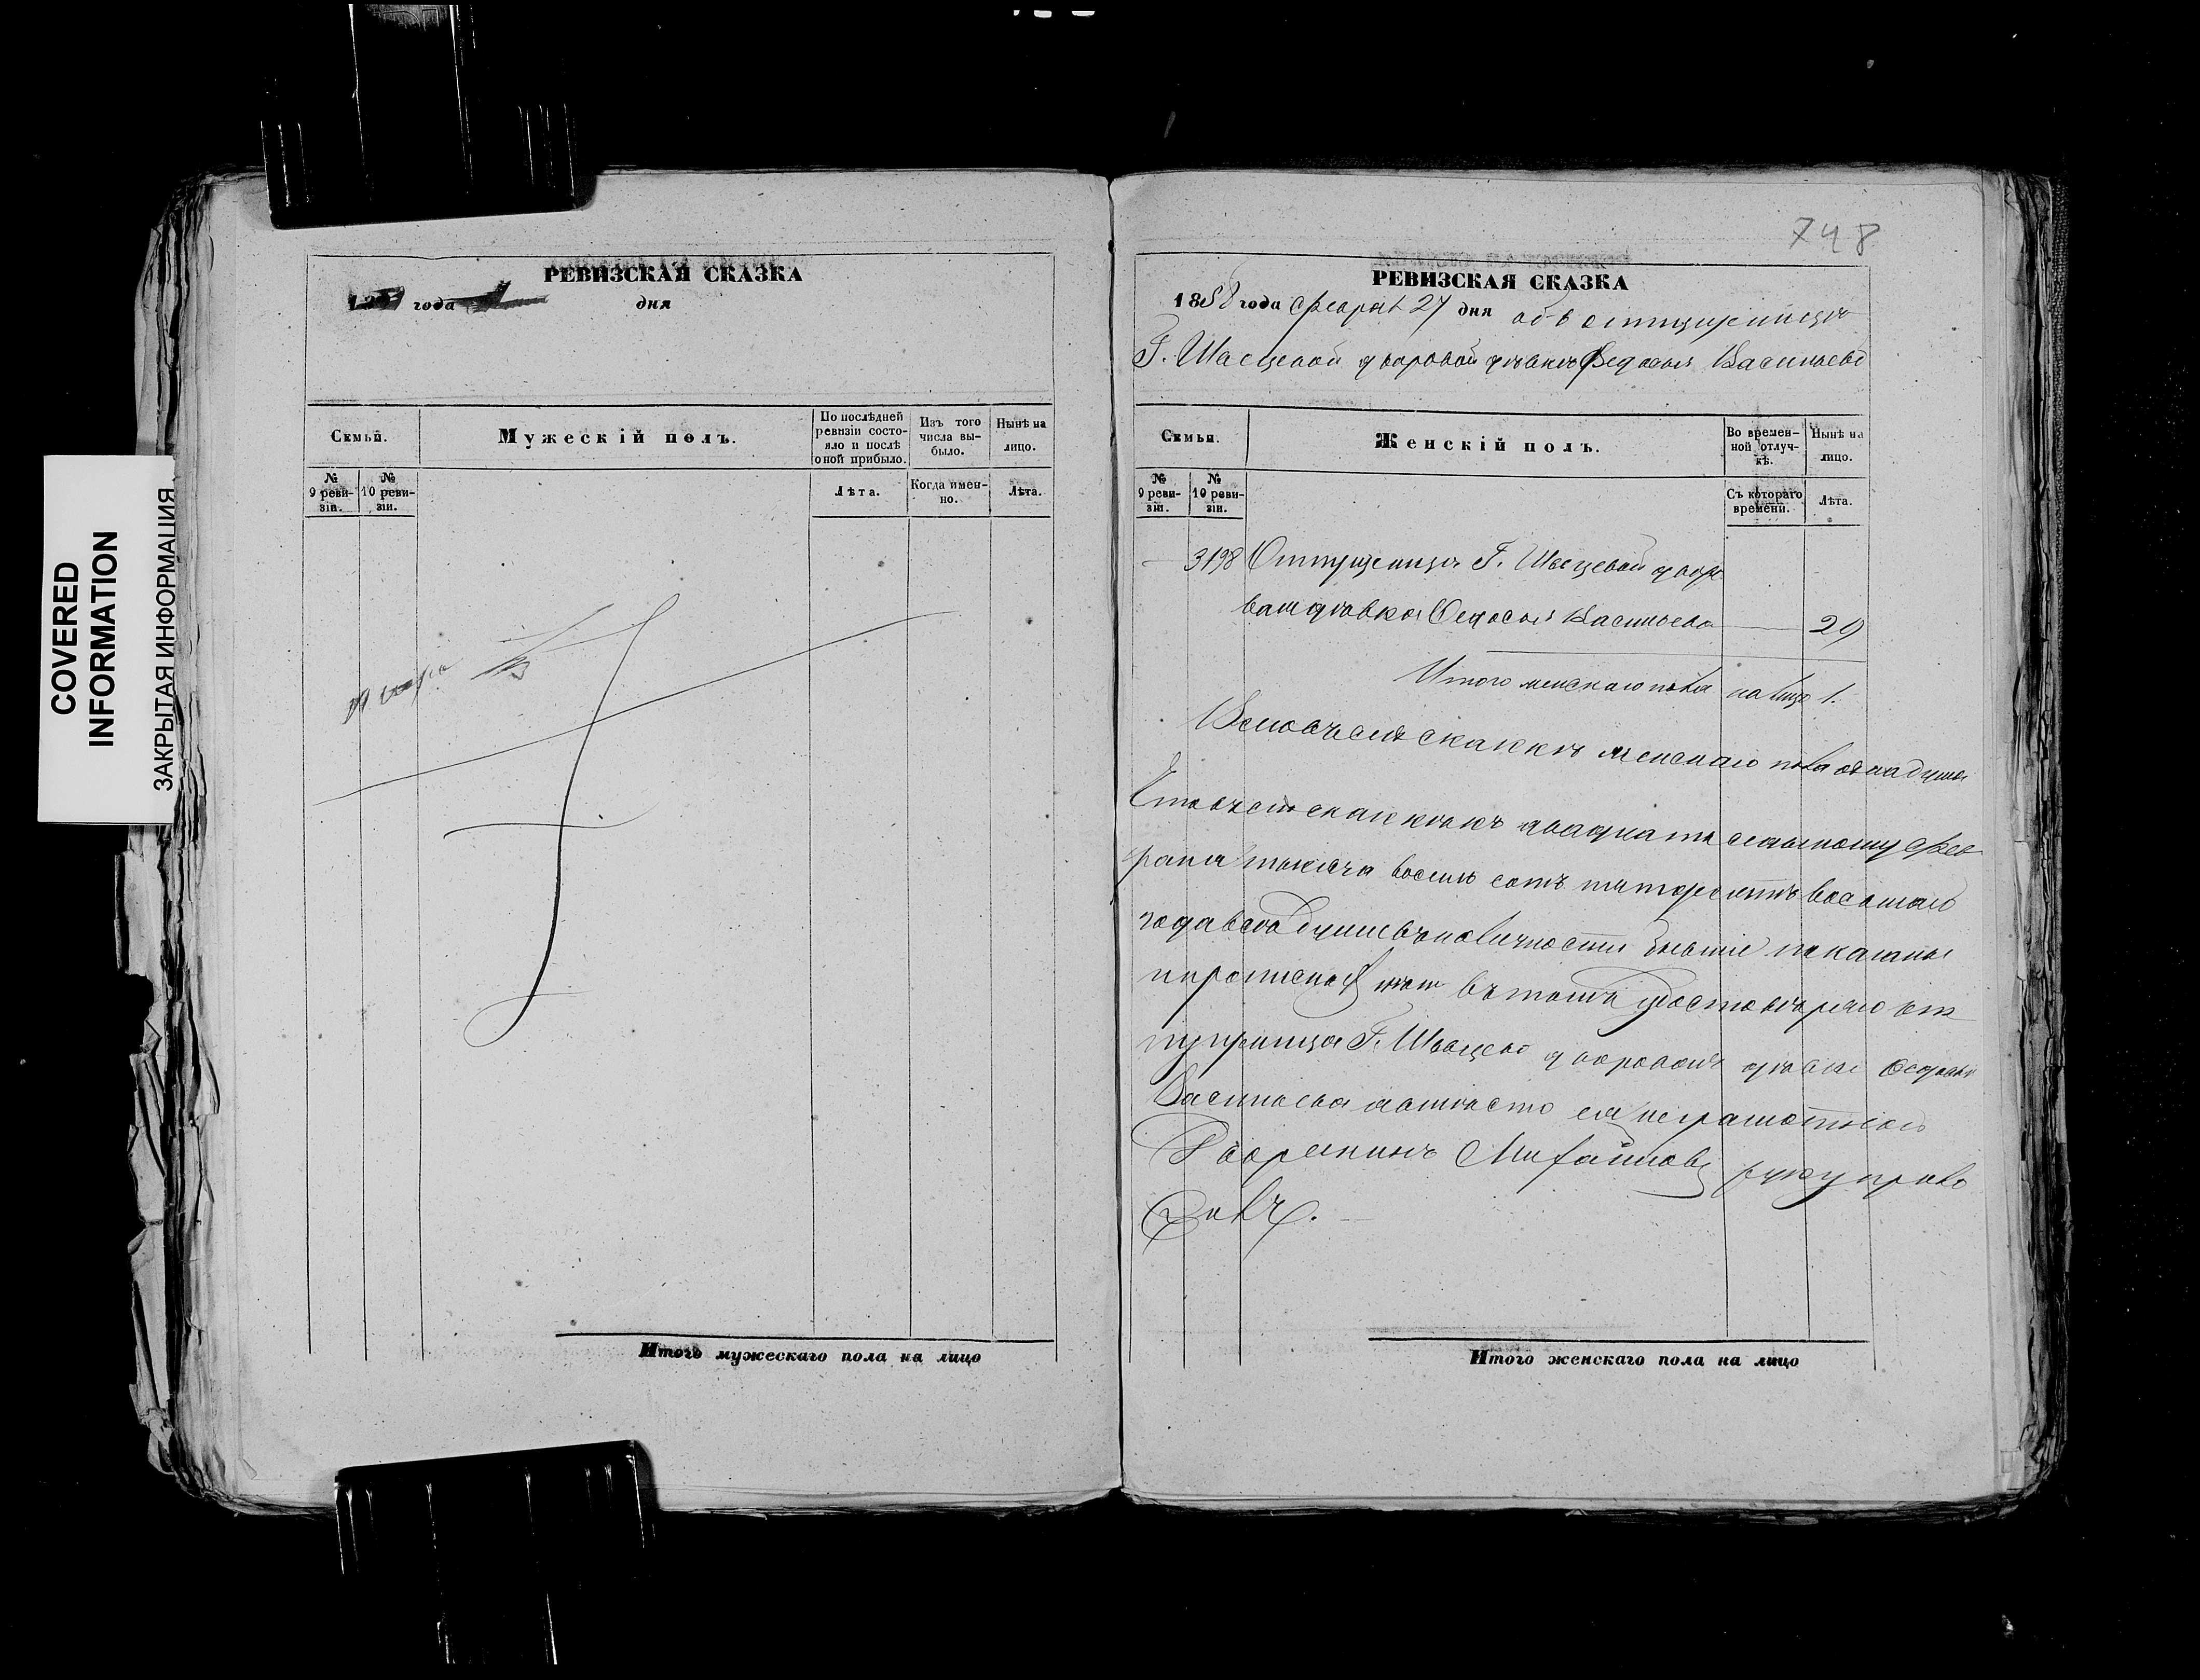 COVERED
INFORMATION
ЗАКРЫТАЯ ИНФОРМАЦИЯ
РЕВИЗСКАЯ СКАЗКА
года дня
Семьи. Мужескій полъ. По послѣдней ревизіи состояло и послѣ оной прибыло. Изъ того числа выбыло. Нынѣ на лицо.
№ 9 ревизіи. № 10 ревизіи. Лѣта. Когда именно. Лѣта.
Итого мужескаго пола на лицо
748
РЕВИЗСКАЯ СКАЗКА
1858 года февраля 27 дня объ отпущенницѣ
Г. Швецевой дворовой дѣвки Федосьи Васильево
Семьи. Женскій полъ. Во временной отлучкѣ. Нынѣ на лицо.
№ 9 ревизіи. № 10 ревизіи. Съ котораго времени. Лѣта.
3198 Отпущеница Г. Швецевой дворо
вая дѣвка Федосья Васильева — 29
Итого женскаго пола на лицо 1.
Всего въ сей сказкѣ женскаго пола одна душа
Что въ сей сказкѣ къ двадцать седьмому фев
раля тысяча восемь сотъ пятьдесятъ восьмаго
года всѣ души въ наличности бывшіе показаны
и прописныхъ нѣтъ въ томъ удостовѣряю от
пущеница Г. Швецево дворовая дѣвка Федосья
Васильева а вмѣсто ея неграмотной
Дворянинъ Михайловъ руку прило
жилъ.
Итого женскаго пола на лицо